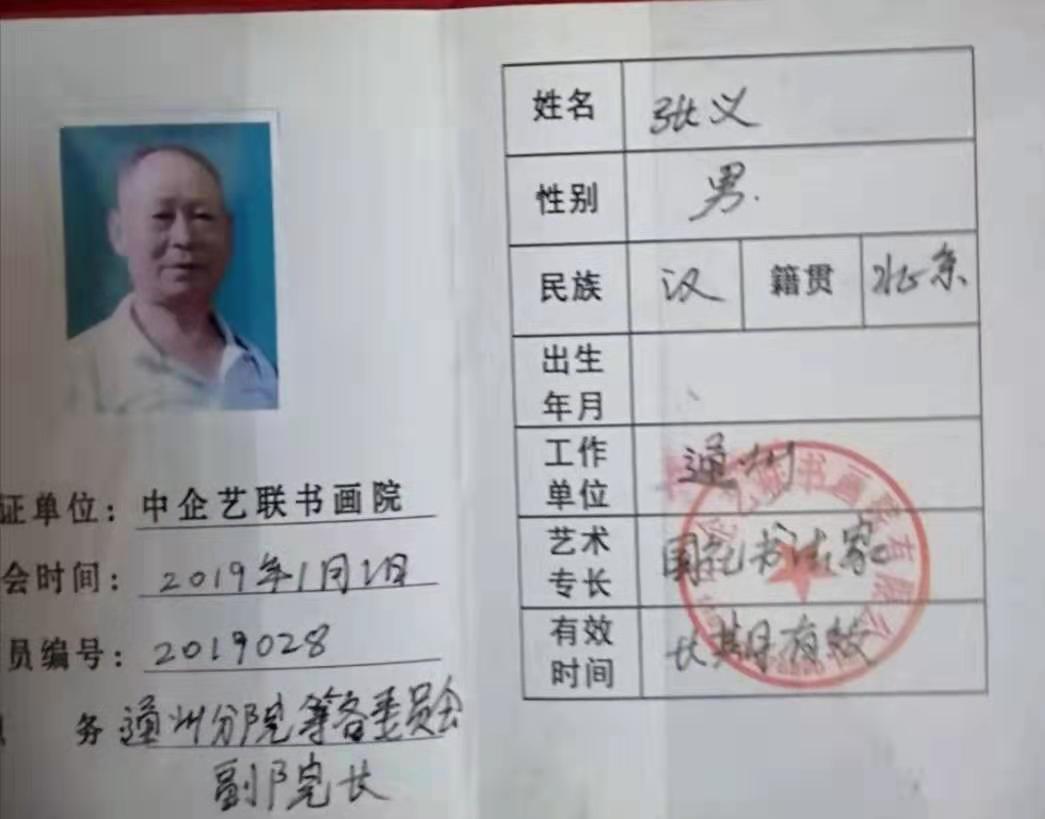 证单位：中企艺联书画院
会时间：2019年1月1日
员编号：2019028
务 通州分院筹备委员会
副院长
姓名 张义
性别 男.
民族 汉 籍贯 北京
出生年月
工作单位 通州
艺术专长 国礼书法家
有效时间 长期有效
艺联书画院有限公